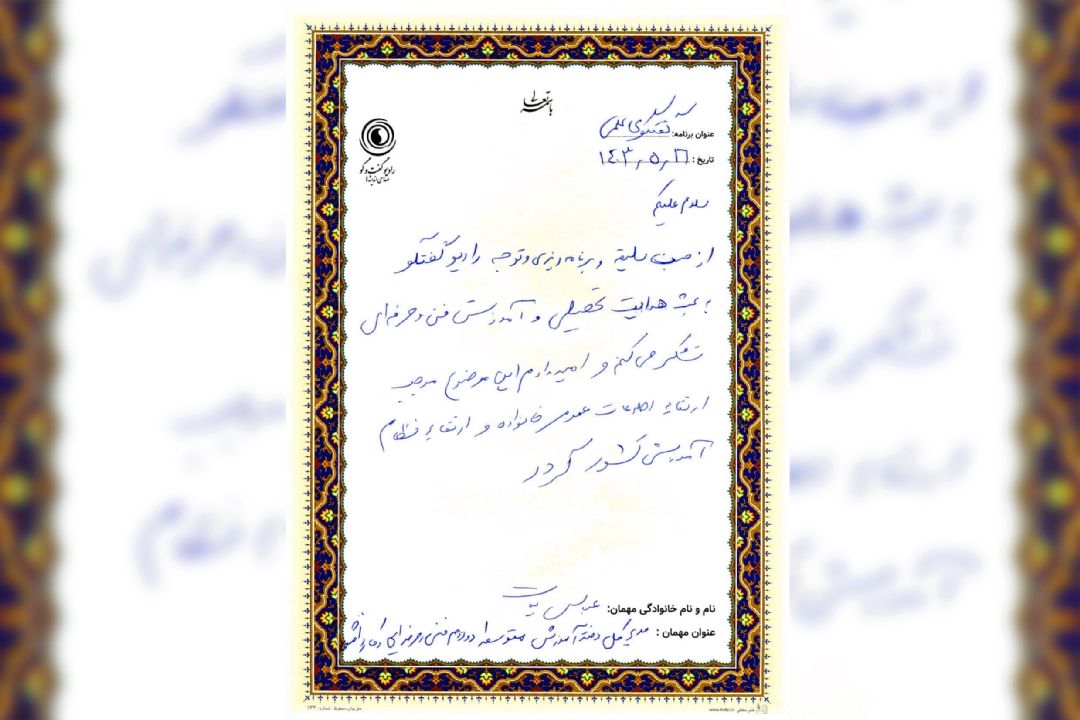 باسمه تعالی
عنوان برنامه: گفتگوی علمی
تاریخ: ۱۴۰۳٫۵٫۲۱
رادیو گفت و گو
سلام علیکم
از حسن سلیقه و برنامه ریزی و توجه رادیو گفتگو
به بحث هدایت تحصیلی و آموزش فنی و حرفه‌ای
تشکر می‌کنم و امیدوارم این موضوع موجب
ارتقاء اطلاعات عمومی خانواده و ارتقاء نظام
آموزشی کشور گردد
نام و نام خانوادگی مهمان: عباس
عنوان مهمان: مدیر کل دفتر آموزش متوسطه دوره دوم فنی و حرفه‌ای و کاردانش